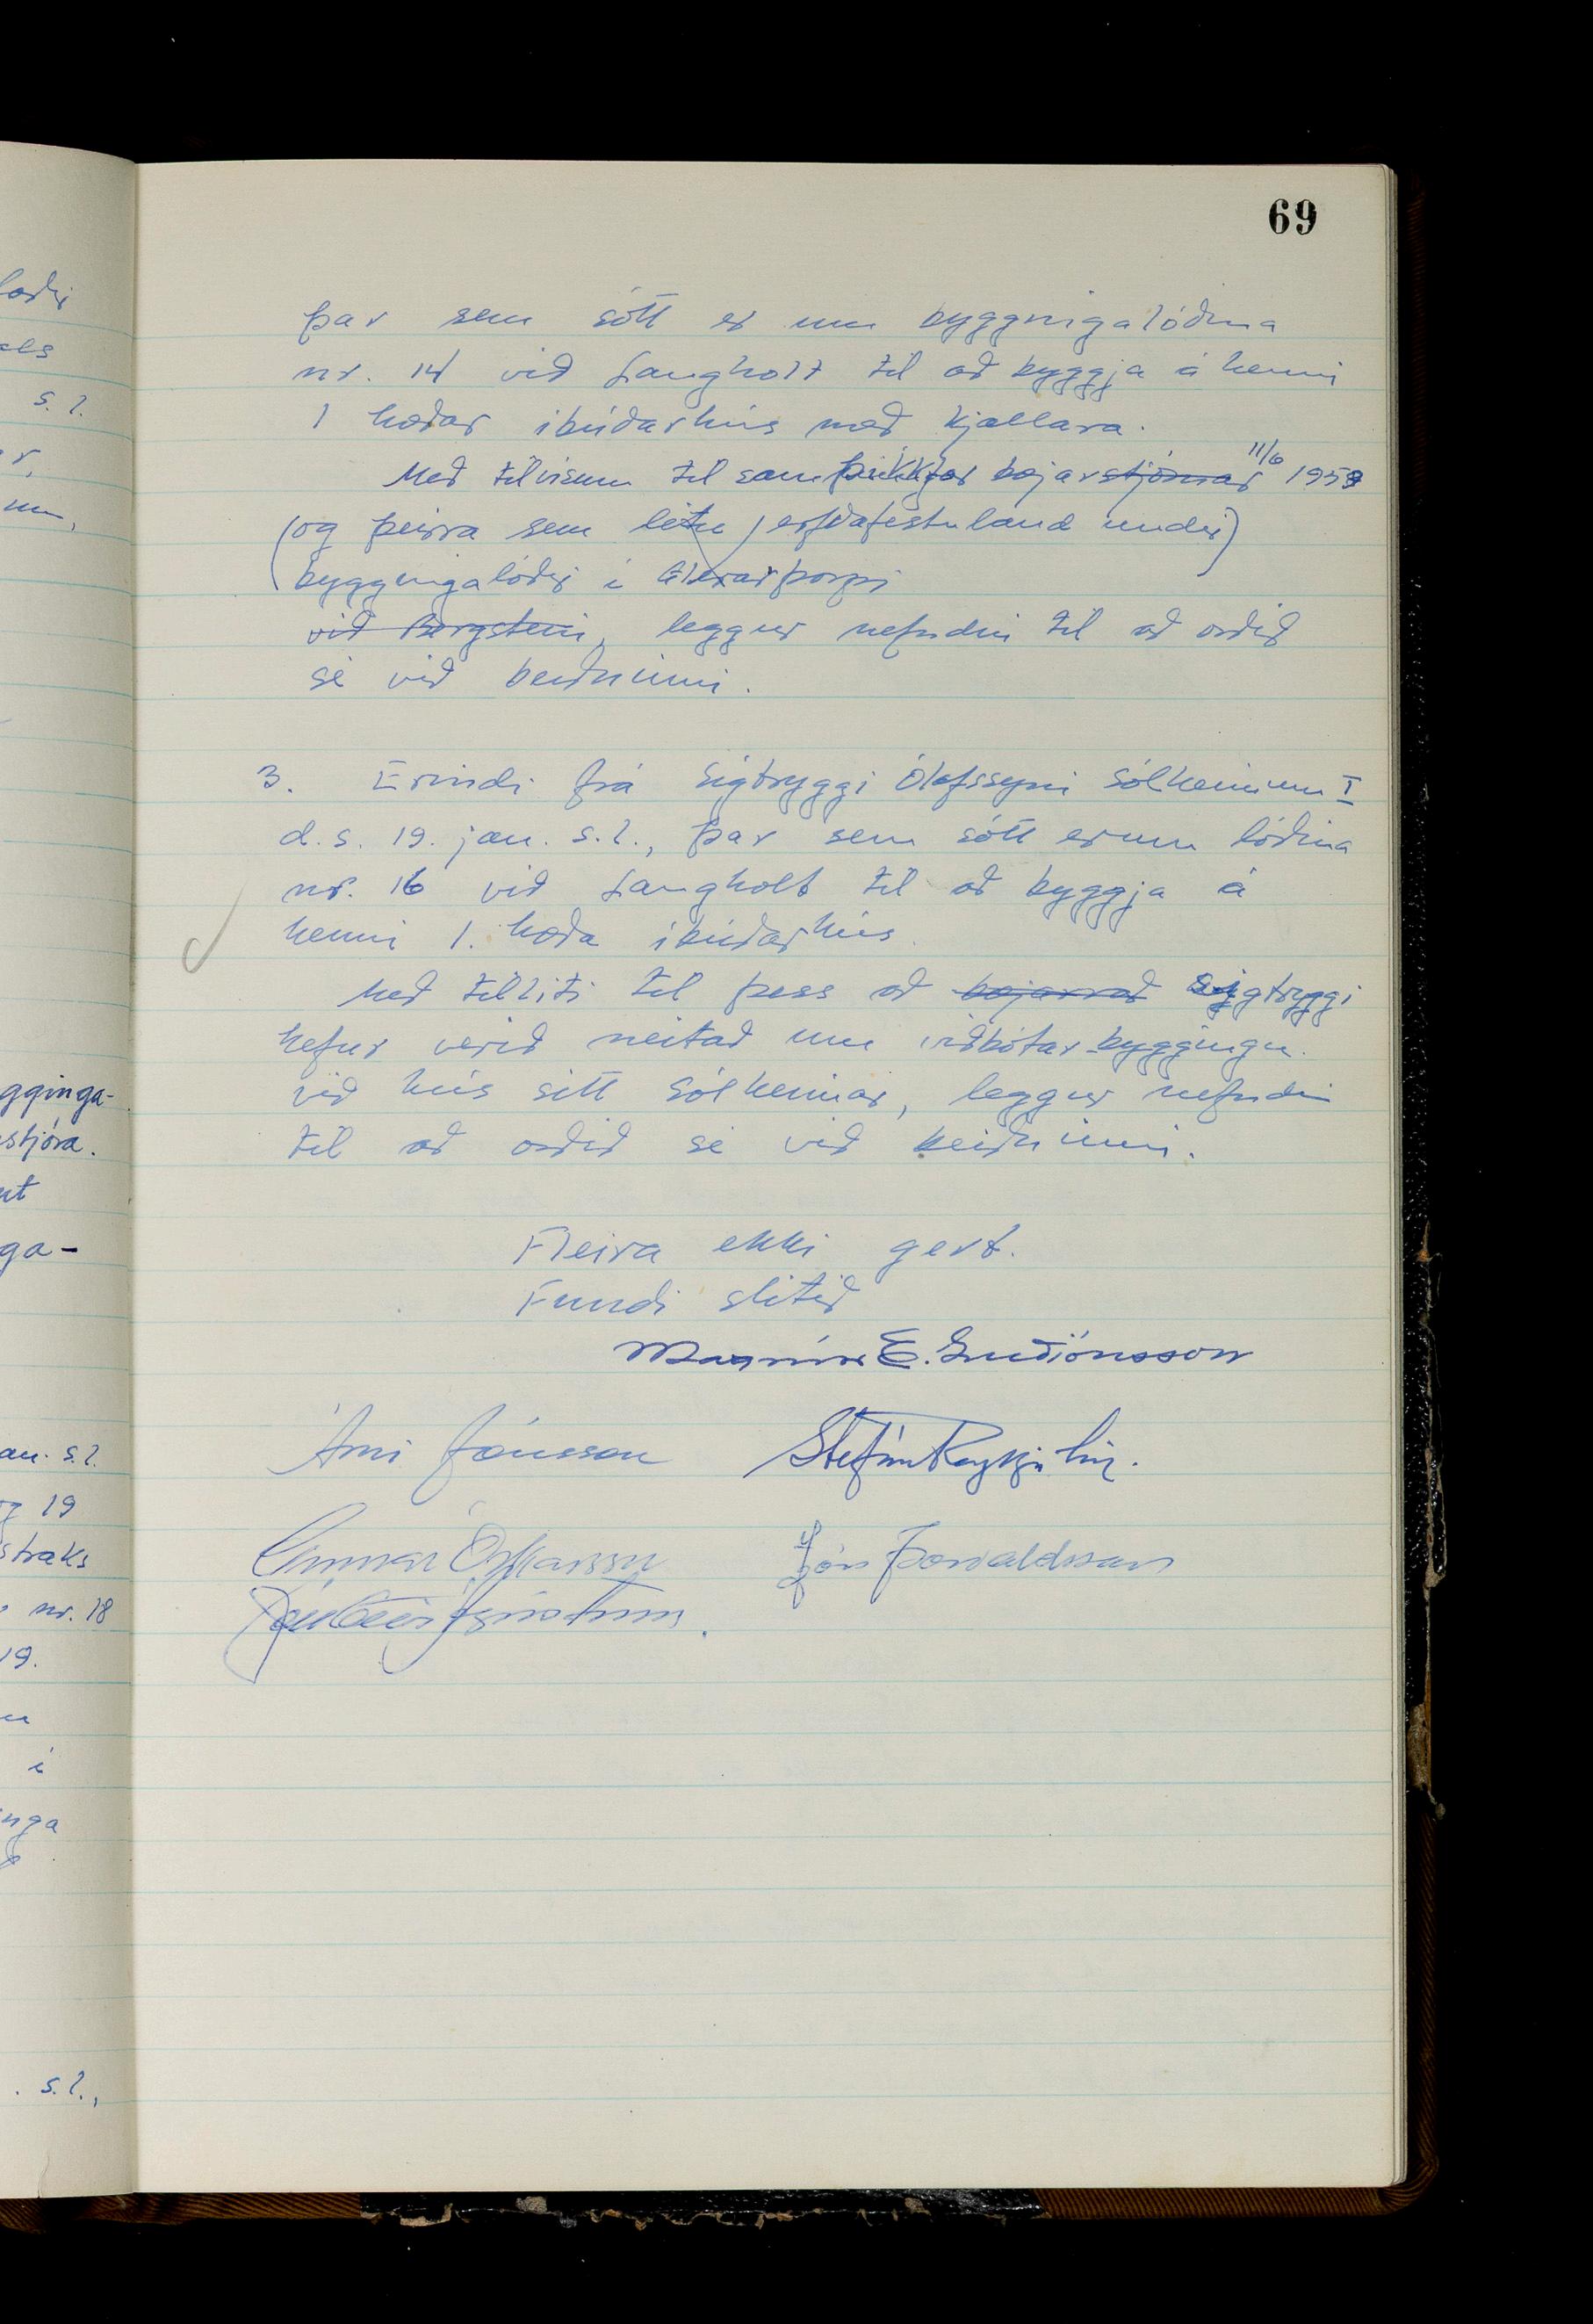 69
þar sem sótt er um byggingalóðina
nr. 14 við Langholt til að byggja á henni
1 hæðar íbúðarhús með kjallara.
Með tilvísun til samþykktar bæjarstjórnar 11/6 1959
(og þeirra sem létu erfðafestuland undir)
byggingalóðir í Glerárþorpi
við Bergsteini, leggur nefndin til að orðið
sé við beiðninni.
3. Erindi frá Sigtryggi Ólafssyni Sólheimum I
d.s. 19. jan. s.l., þar sem sótt er um lóðina
nr. 16 við Langholt til að byggja á
henni 1. hæða íbúðarhús.
Með tilliti til þess að bæjarráð Sigtryggi
hefur verið neitað um viðbótar byggingu
við hús sitt Sólheimar, leggur nefndin
til að orðið sé við beiðninni.
Fleira ekki gert.
Fundi slitið
Magnús E. Guðjónsson
Árni Jónsson Stefán Reykjalín.
Gunnar Óskarsson Jón Þorvaldsson
gginga-
stjóra.
ga-
an. s.l.
19
straks
nr. 18
19.
í
nga
s.l.,